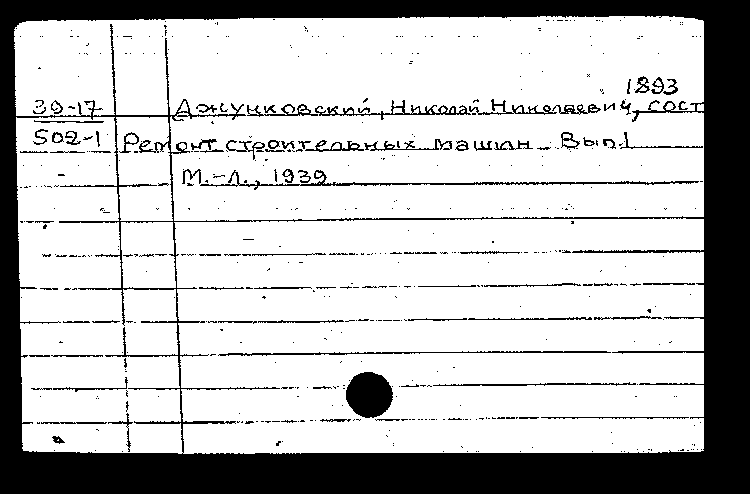 1893
39-17 Джунковский, Николай Николаевич, сост
502-1 Ремонт строительных машин. Вып.1
М.-Л., 1939